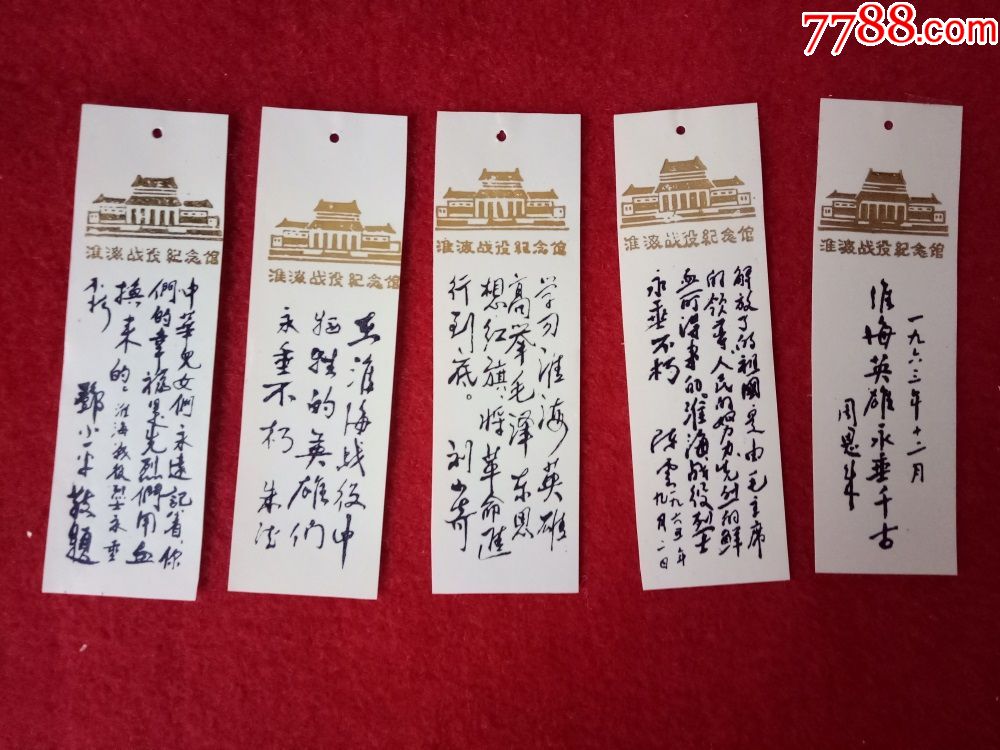 7788.com
淮海战役紀念馆
中華兒女們永遠記着，你
們的幸福是先烈們用血
換来的。淮海战役烈士永垂
不朽
鄧小平敬題
淮海战役紀念馆
在淮海战役中
牺牲的英雄们
永垂不朽
朱德
淮海战役紀念馆
学习淮海英雄
高举毛泽东思
想红旗，将革命進
行到底。
刘少奇
淮海战役紀念馆
解放了的祖國是由毛主席
的领導、人民的努力、先烈的鮮
血所得来的。淮海战役烈士
永垂不朽
陈雲
一九六五年
九月二日
淮海战役紀念馆
一九六三年十二月
淮海英雄永垂千古
周恩来